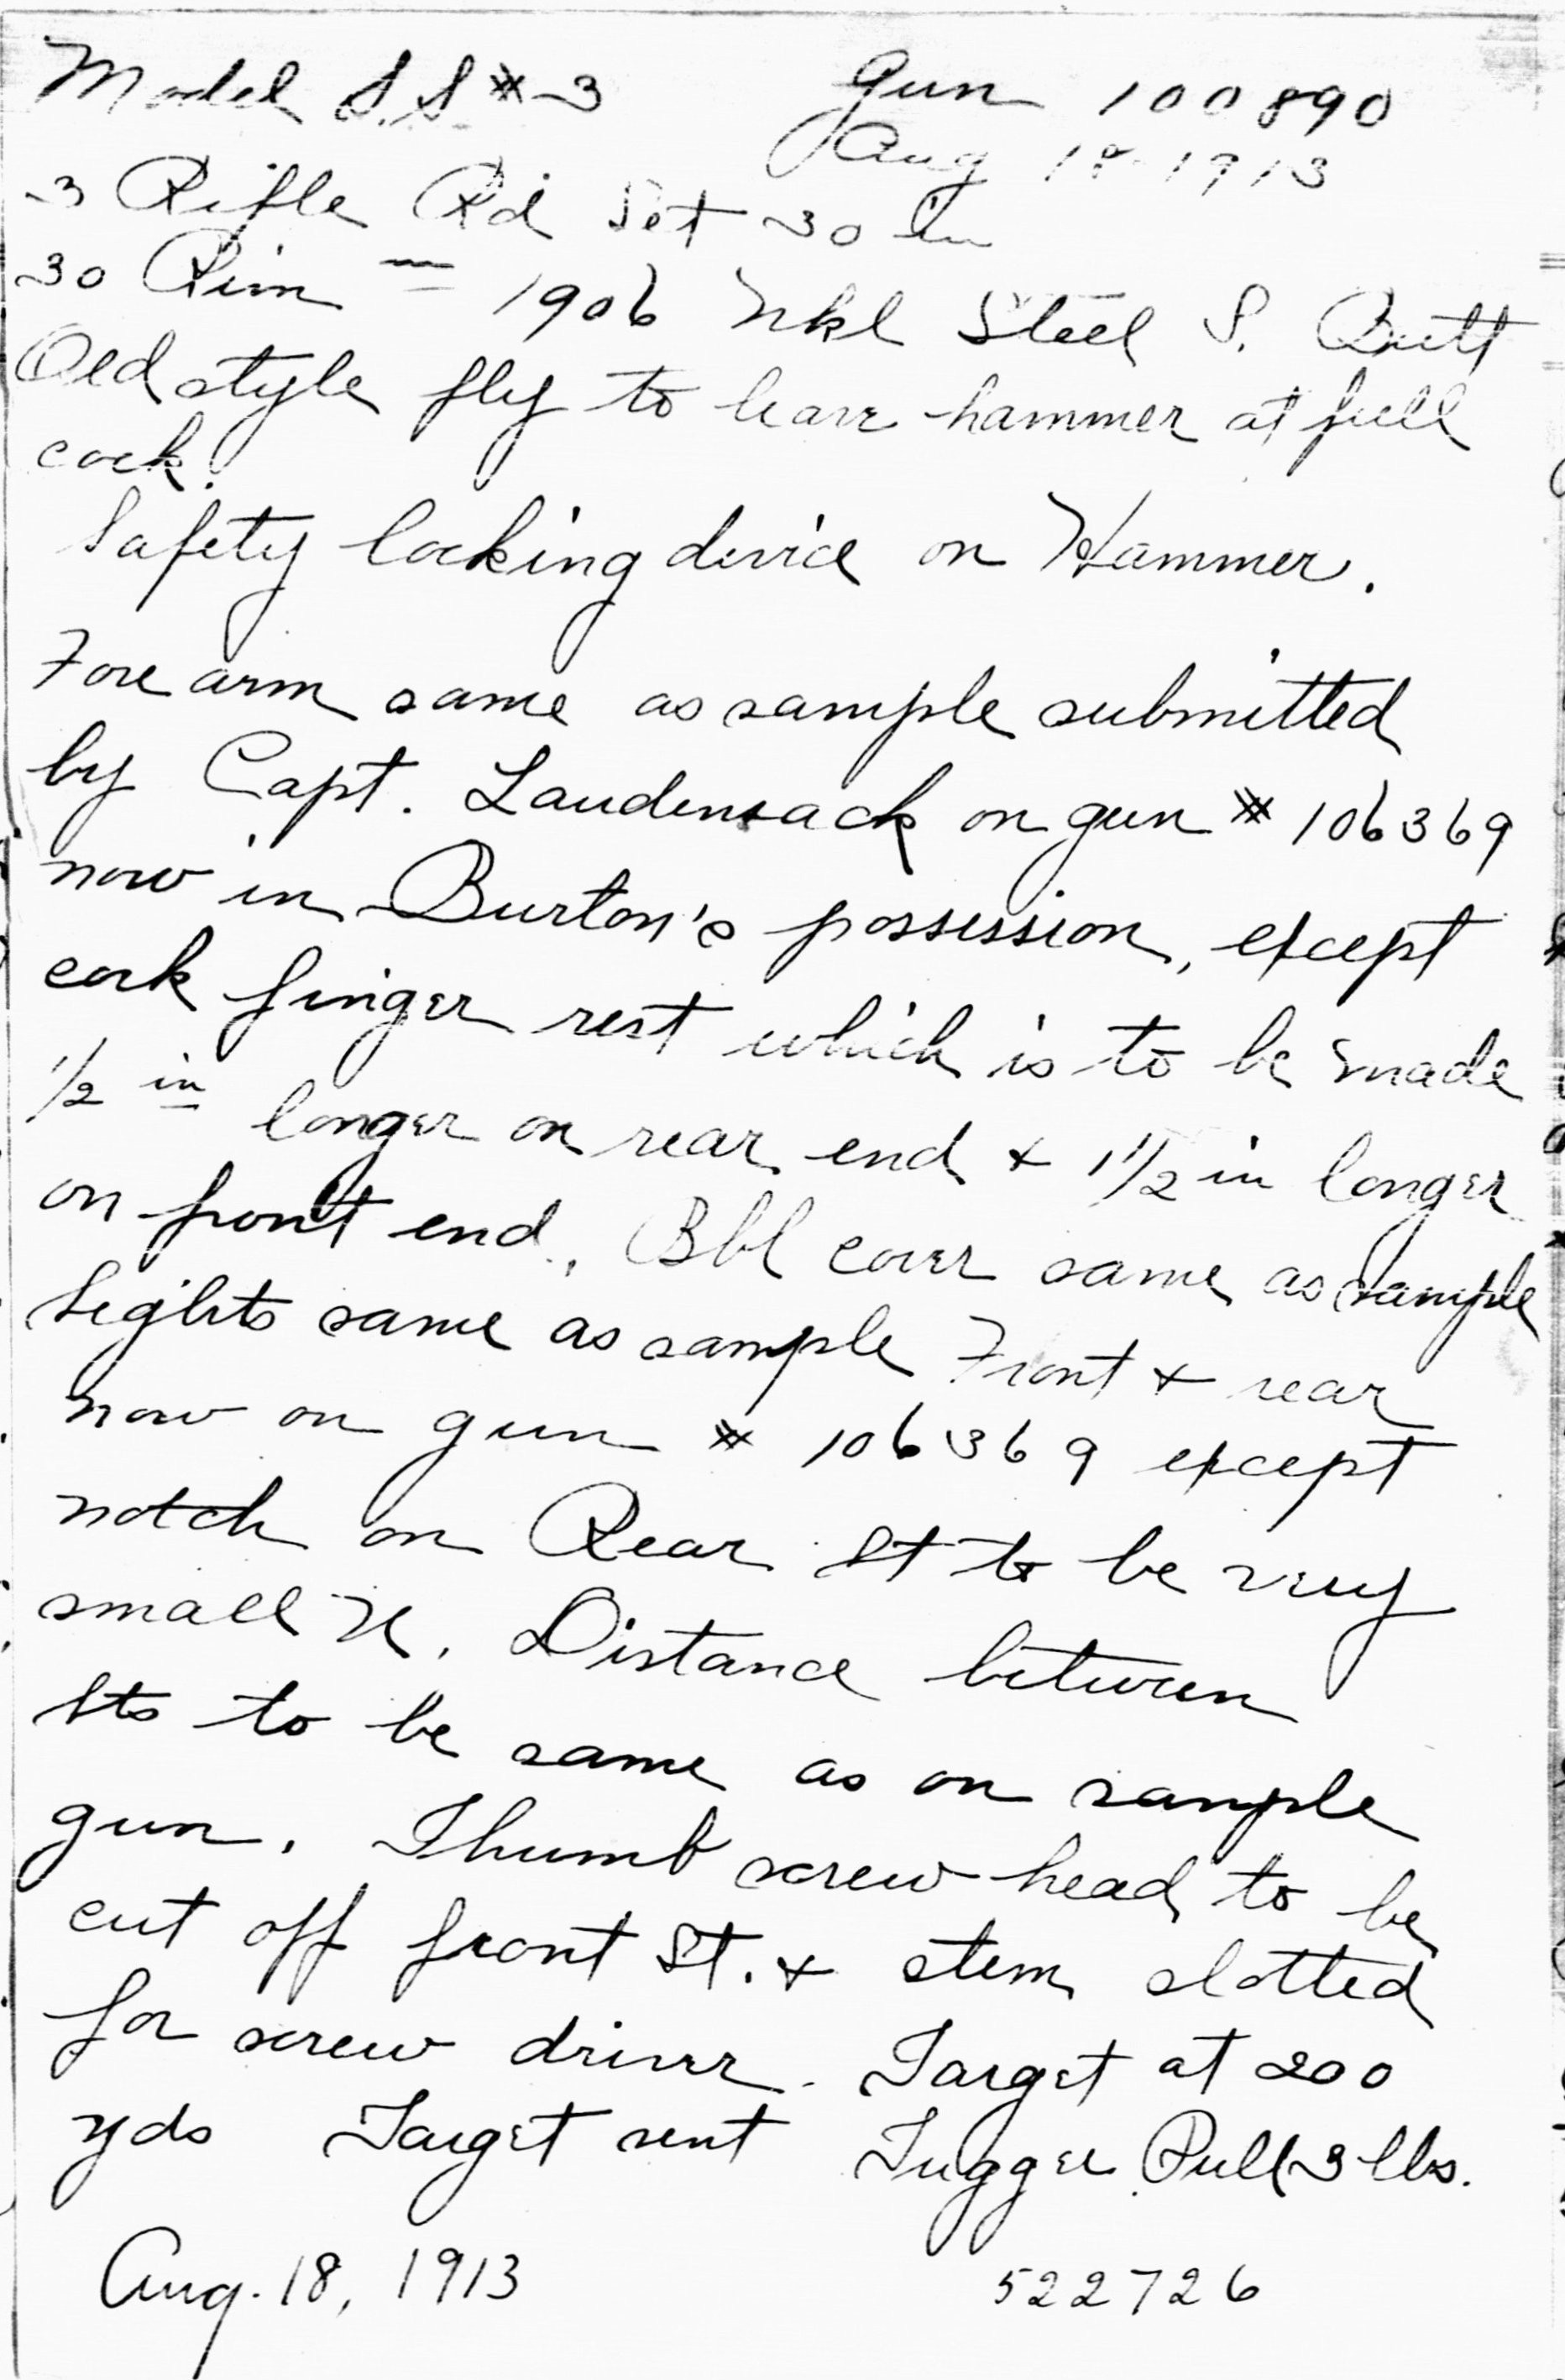 Model S.S #3 Gun 100890
Aug 18-1913
3 Rifle Rd Set 30 in
30 Rim 1906 Nkl Steel S. Butt
Old style fly to leave hammer at full
cock.
Safety locking device on Hammer.
Fore arm same as sample submitted
by Capt. Laudensack on gun # 106369
now in Burton's possession, except
cork finger rest which is to be made
1/2 in longer on rear end + 1 1/2 in longer
on front end. Bbl cover same as sample
Sights same as sample Front + rear
now on gun # 106369 except
notch on Rear St to be very
small U. Distance between
Sts to be same as on sample
gun. Thumb screw head to be
cut off front St. + stem slotted
for screw driver. Target at 200
yds Target sent Trigger Pull 3 lbs.
Aug. 18, 1913 522726